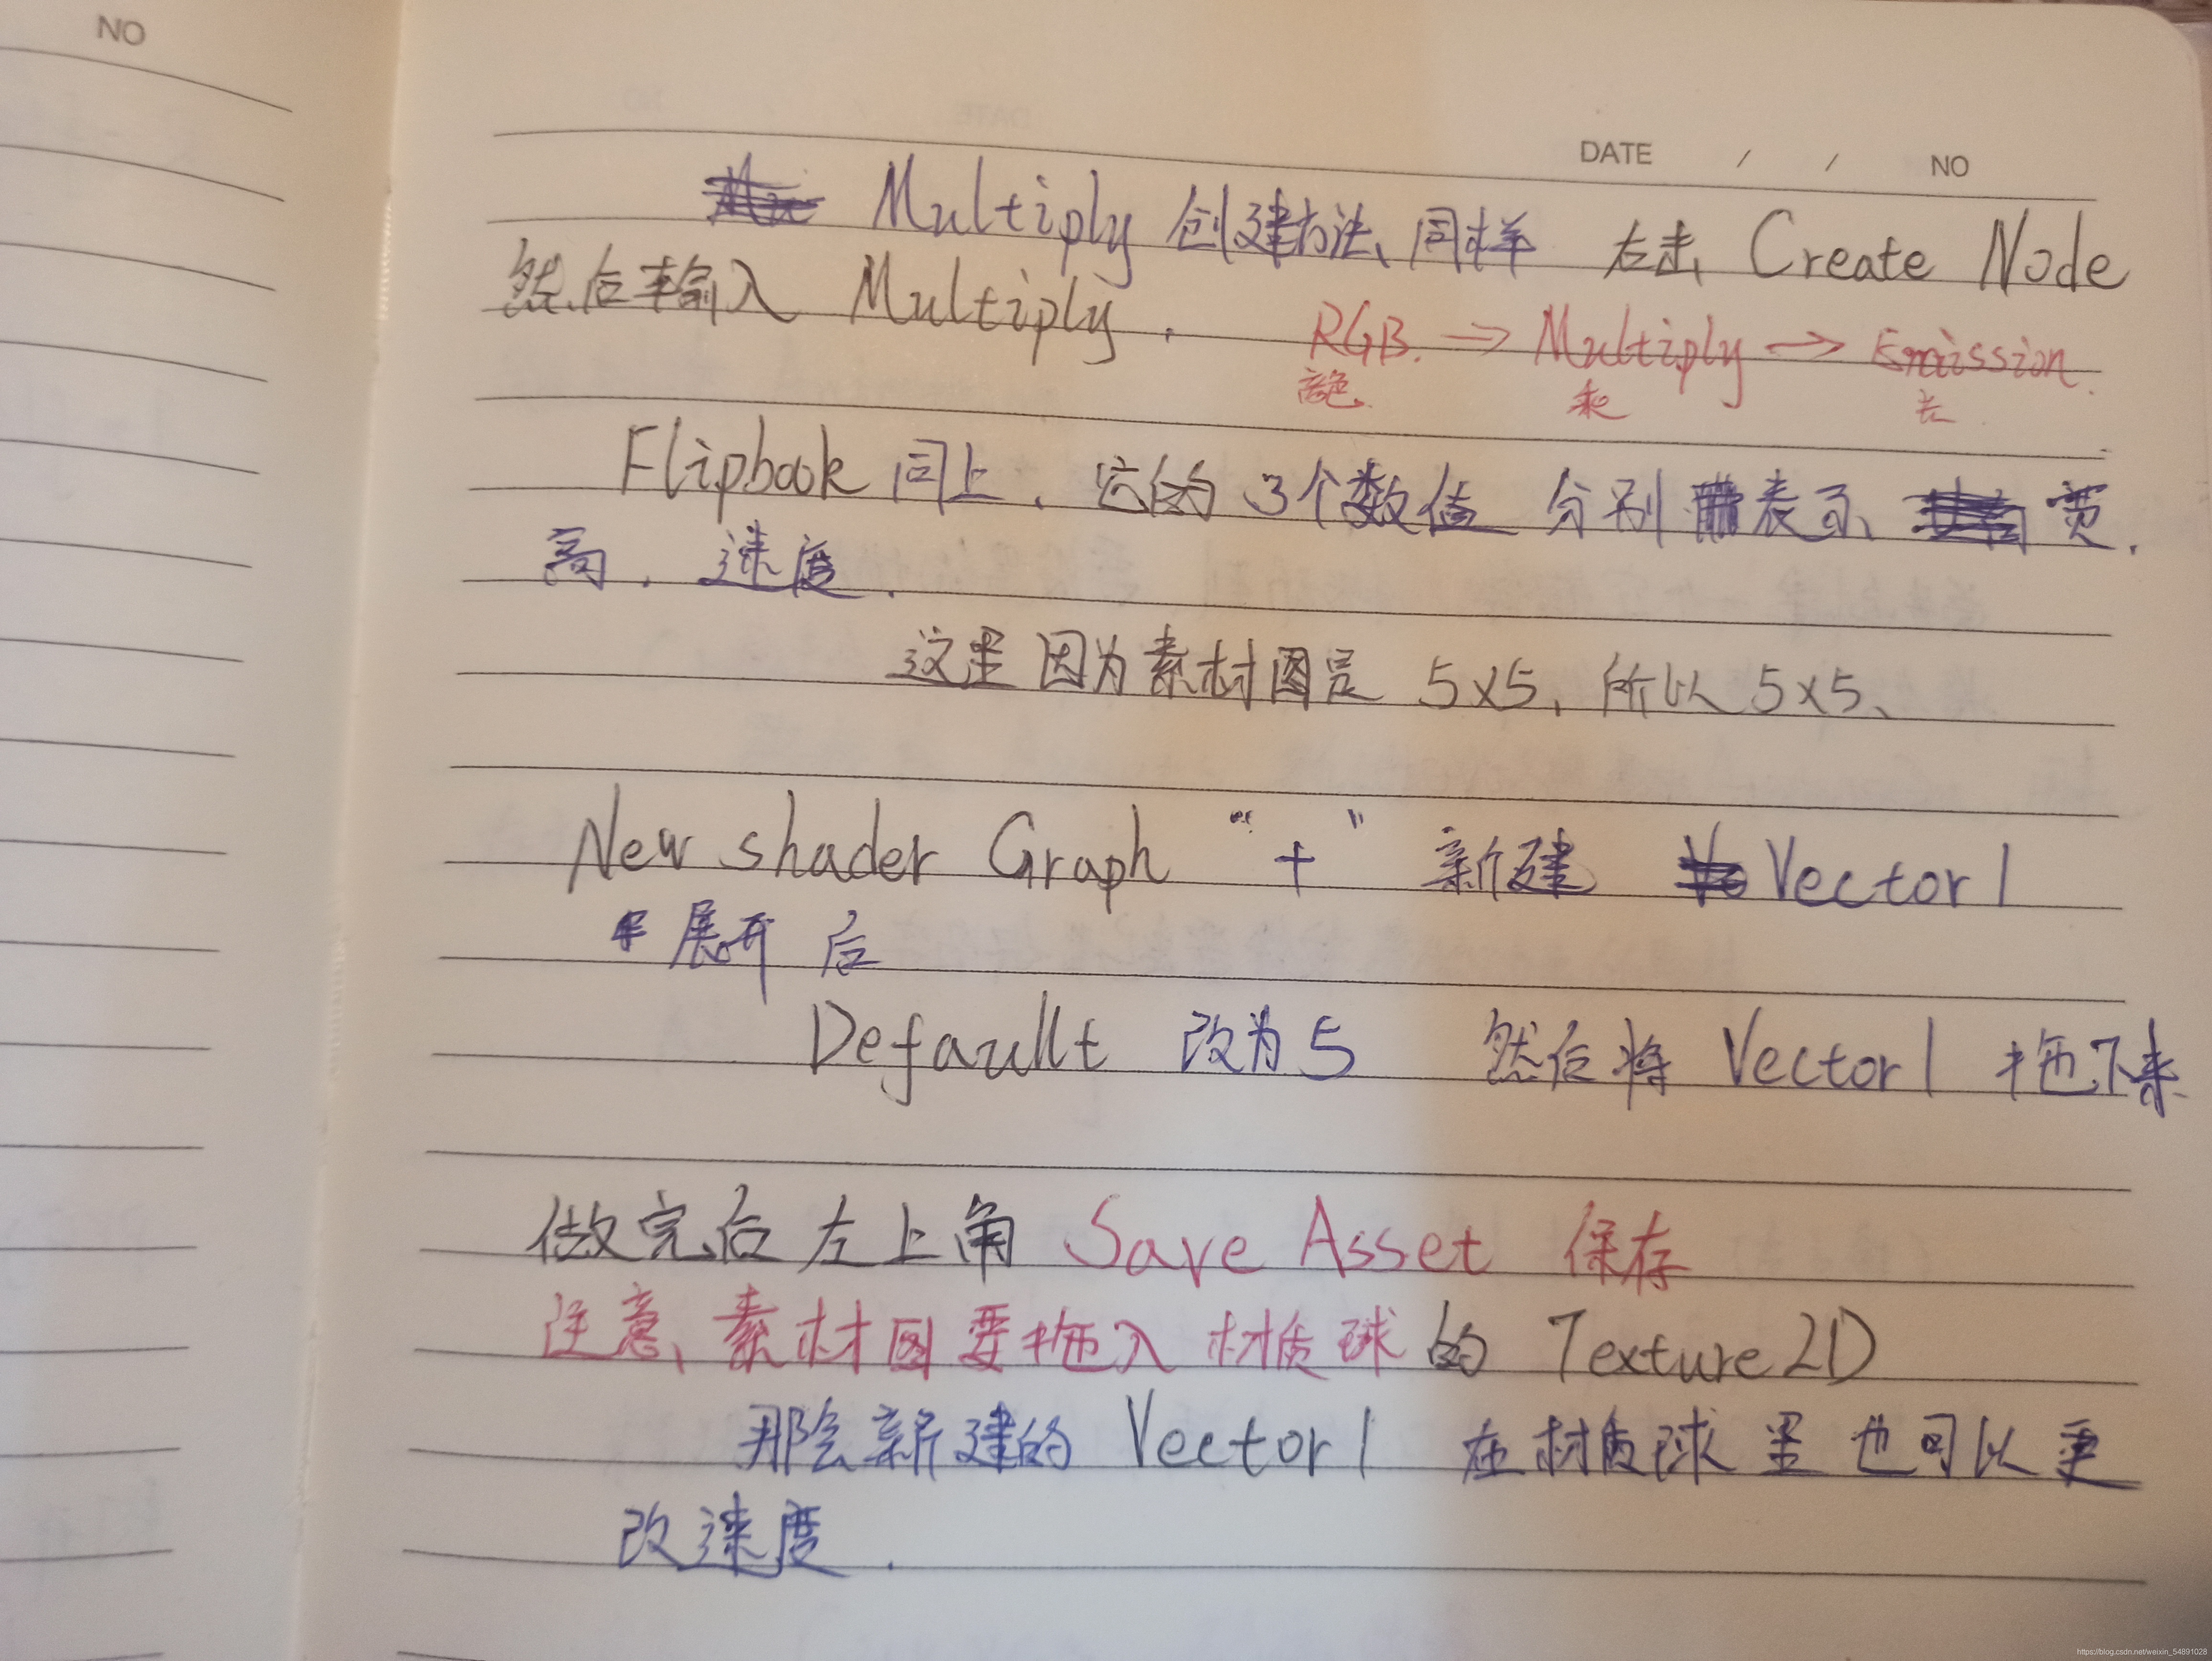 NO
DATE / / NO
Multiply 创建方法、同样 右击 Create Node
然后输入 Multiply.
RGB. → Multiply → Emission.
乘
Flipbook 同上. 它的 3个数值 分别 表示、 宽.
高. 速度.
这里因为素材图是 5x5, 所以 5x5、
New shader Graph “+” 新建 Vector1
展开后
Default 改为5 然后将 Vector1 拖下来
做完后左上角 Save Asset 保存
注意、素材图要拖入材质球的 Texture2D
那么新建的 Vector1 在材质球里也可以更
改速度.
https://blog.csdn.net/weixin_54891028